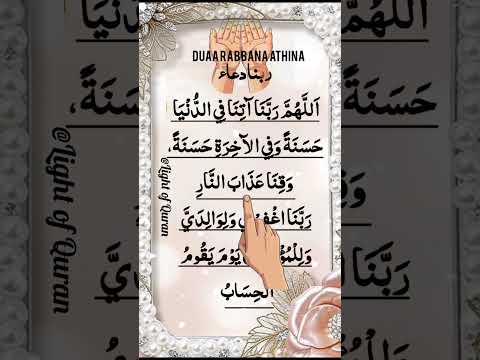 DUAA RABBANA ATHINA
ربنا دعاء
اَللَّهُمَّ رَبَّنَا آتِنَا فِي الدُّنْيَا
حَسَنَةً وَفِي الآخِرَةِ حَسَنَةً،
وَقِنَا عَذَابَ النَّارِ
رَبَّنَا وَلِوَالِدَيَّ
يَوْمَ يَقُومُ
الحِسَابُ
@Light of Quran